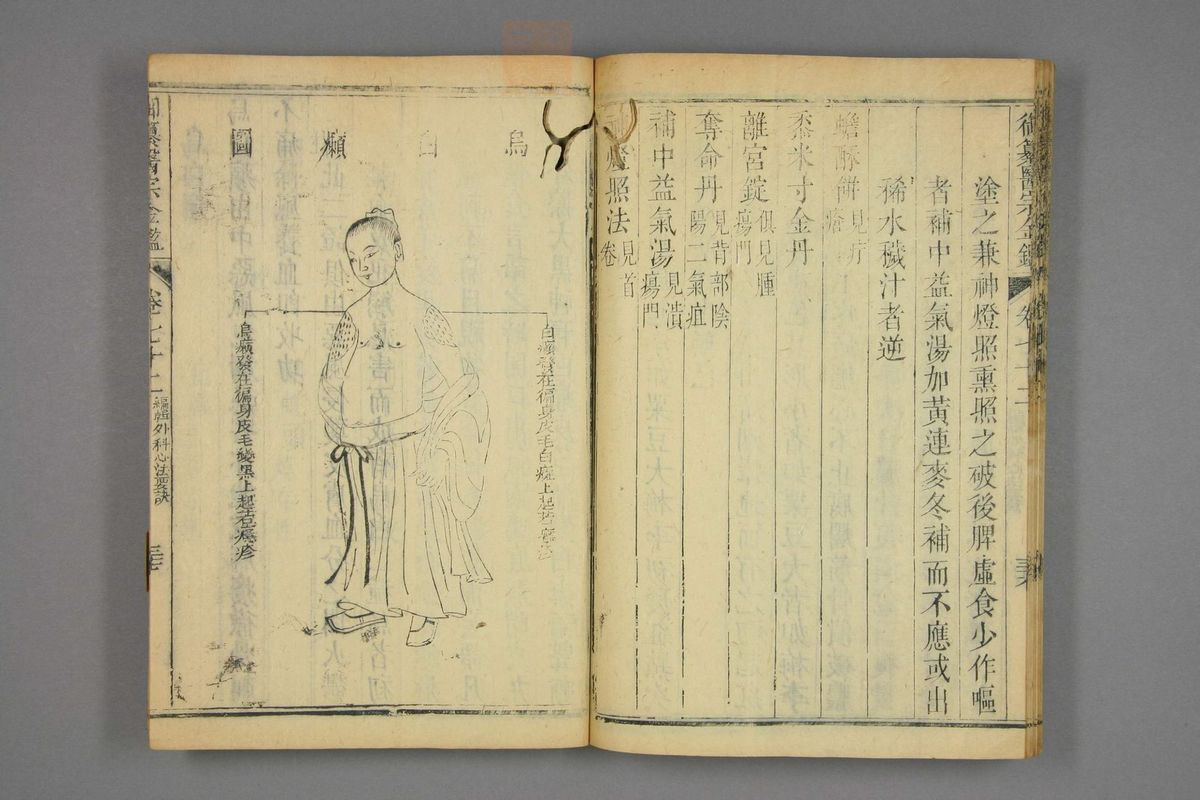 御纂醫宗金鑑 卷七十二
塗之兼神燈照熏照之破後脾虛食少作嘔
者補中益氣湯加黃連麥冬補而不應或出
稀水穢汁者逆
蟾酥餅 見疔瘡
黍米寸金丹
離宮錠 俱見腫瘍門
奪命丹 見背部陰陽二氣疽
補中益氣湯 見潰瘍門
神燈照法 見首卷
烏白癩圖
白癜發在徧身皮毛白斑上起
烏癩發在徧身皮毛變黑上起若癮疹
御纂醫宗金鑑 卷七十二 編輯外科心法要訣